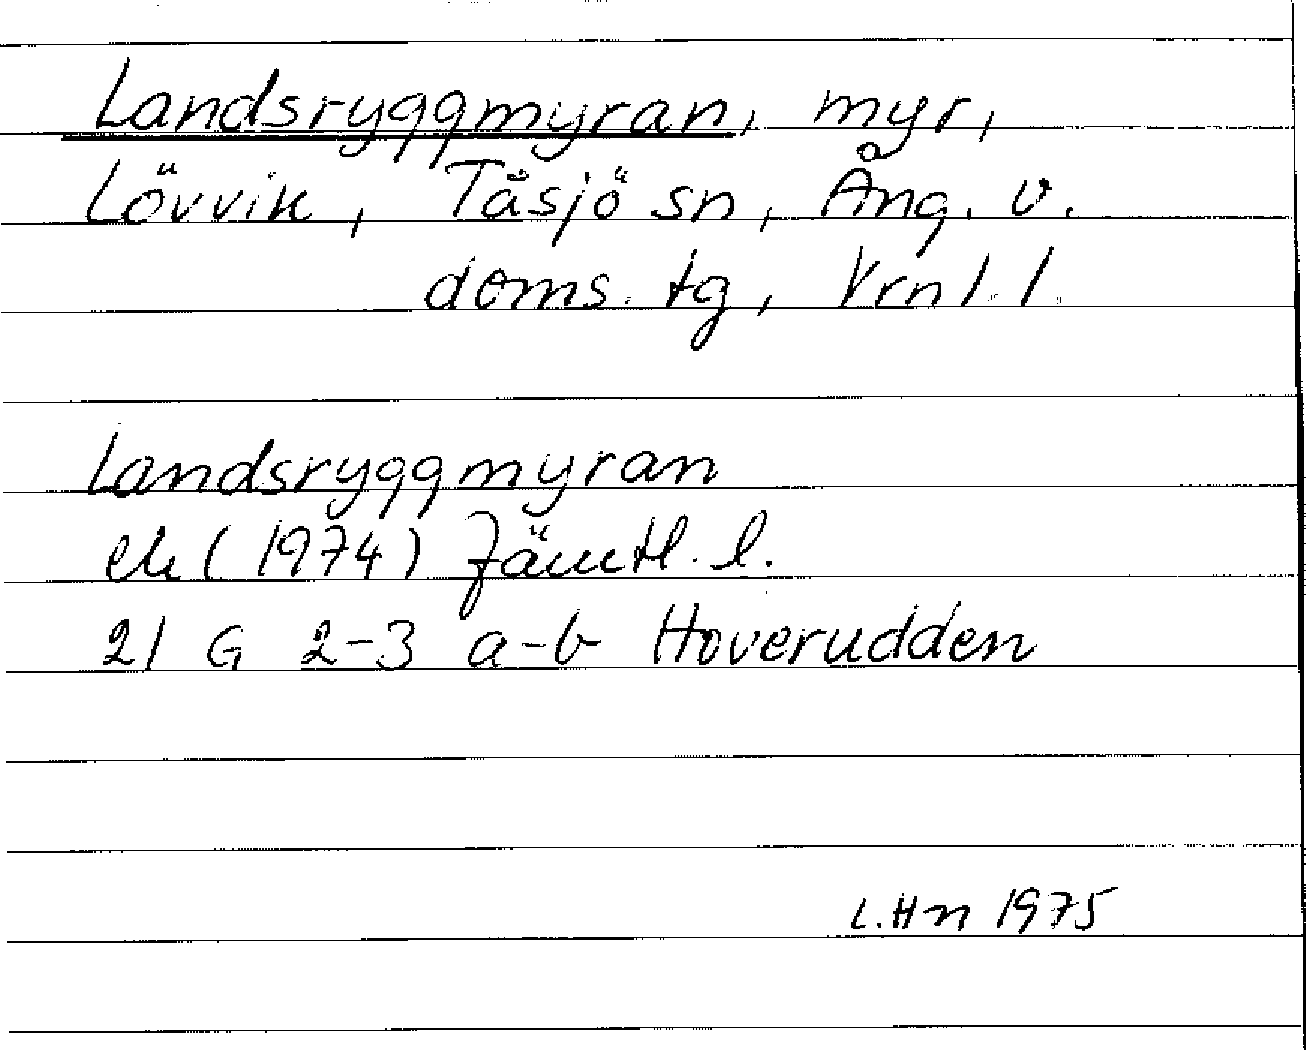 Landsryggmyran, myr,
Lövvik, Tåsjö sn, Ång. v.
doms. tg, Vrnl. l.
Landsryggmyran
ek (1974) Jämtl. l.
21 G 2-3 a-b Hoverudden
L. Hn 1975